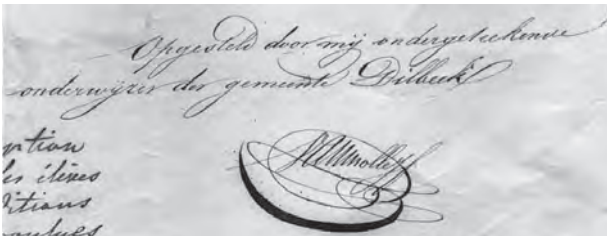 Opgesteld door mij ondergeteekende
onderwyzer der gemeente Dilbeek
ption
les élèves
ditions